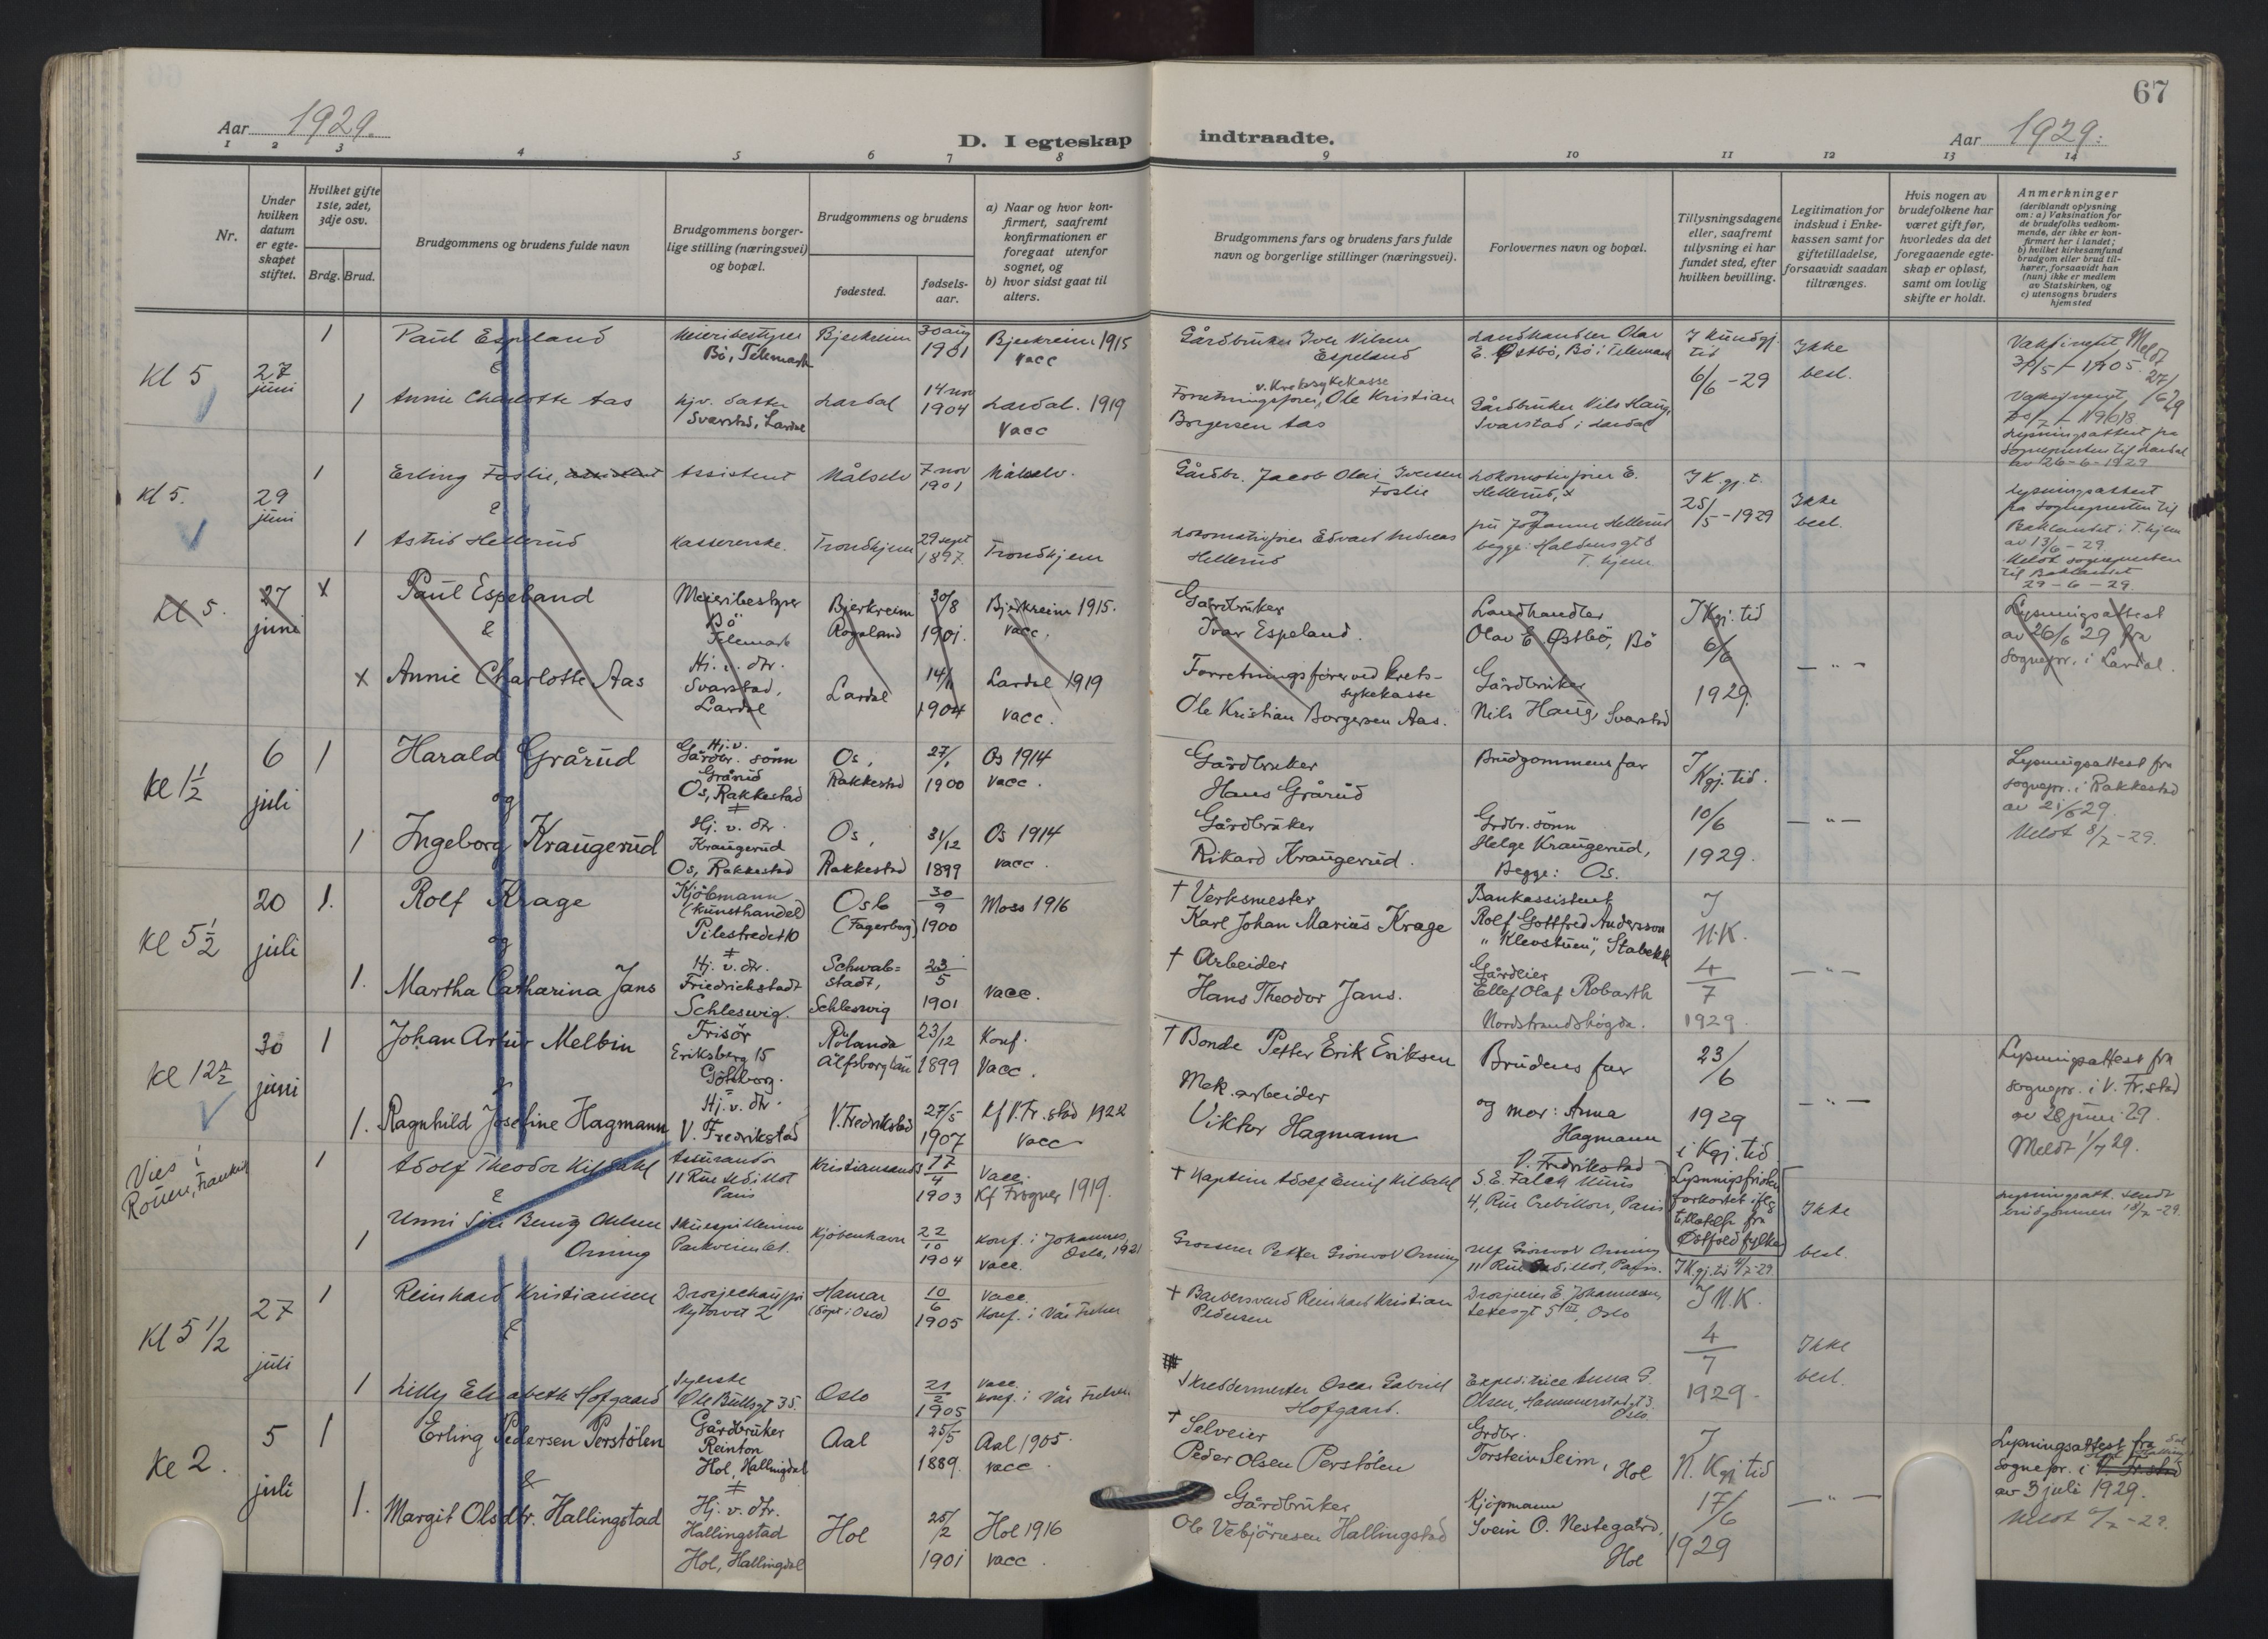 67
Aar 1929.
D. I egteskap indtraadte.
Aar 1929.
1 2 3 4 5 6 7 8 9 10 11 12 13 14
Nr.
Under
hvilken
datum
er egte-
skapet
stiftet.
Hvilket gifte
1ste, 2det,
3dje osv.
Brdg. Brud.
Brudgommens og brudens fulde navn
Brudgommens borger-
lige stilling (næringsvei)
og bopæl.
Brudgommens og brudens
fødested.
fødsels-
aar.
a) Naar og hvor kon-
firmert, saafremt
konfirmationen er
foregaat utenfor
sognet, og
b) hvor sidst gaat til
alters.
Brudgommens fars og brudens fars fulde
navn og borgerlige stillinger (næringsvei).
Forlovernes navn og bopæl.
Tillysningsdagene
eller, saafremt
tillysning ei har
fundet sted, efter
hvilken bevilling.
Legitimation for
indskud i Enke-
kassen samt for
giftetilladelse,
forsaavidt saadan
tiltrænges.
Hvis nogen av
brudefolkene har
været gift før,
hvorledes da det
foregaaende egte-
skap er opløst,
samt om lovlig
skifte er holdt.
Anmerkninger
(deriblandt oplysning
om: a) Vaksination for
de brudefolks vedkom-
mende, der ikke er kon-
firmert her i landet;
b) hvilket kirkesamfund
brudgom eller brud til-
hører, forsaavidt han
(hun) ikke er medlem
av Statskirken, og
c) utensogns bruders
hjemsted
Kl 5
27
juni
1
Paul Espeland
&
Meieribestyrer
Bö, Telemark
Bjerkreim
30 aug
1901
Bjerkreim 1915
vacc
Gårdbruker Iver Nilsen
Espeland
Landhandler Olav
E. Østbö, Bö i Telemark
I kundgj.
tid
6/6 - 29
Ikke
besl.
Vaksinert
30/5 - 1905.
Meldt
27/6 29
1
Annie Charlotte Aas
Hjv. datter
Svarstad, Lardal
Lardal
14 nov
1904
Lardal. 1919
Vacc
v. Kretssykekasse
Forretningsförer, Ole Kristian
Borgersen Aas
Gårdbruker Nils Haug,
Svarstad i Lardal
Vaksinert,
Lysningsattest fra
Sognepresten til Lardal
av 26-6-1929
Kl 5.
29
juni
1
Erling Foslie, assistent
&
Assistent
Målselv
7 nov
1901
Målselv.
Gårdbr. Jacob Olai Iversen
Foslie
Lokomotivförer E.
Hellerud, &
I K.gj.t.
25/5 - 1929
Ikke
besl.
Lysningsattest
fra Sognepresten til
Baklandet i T.hjem
av 13/6 - 29
Meldt sognepresten
til Baklandet
29 - 6 - 29.
1
Astrid Hellerud
Kassererske.
Trondhjem
29 sept
1897.
Trondhjem
Lokomotivförer Edvard Andreas
Hellerud
fru Johanne Hellerud
begge: Haldensgt 8
T. hjem
Kl 5.
27
juni
x
Paul Espeland
&
Meieribestyrer
Bö
Telemark
Bjerkreim
Rogaland
30/8
1901.
Bjerkreim 1915.
vacc.
Gårdbruker
Ivar Espeland.
Landhandler
Olav E. Østbö, Bö
I Kgj. tid
6/6
1929.
— " —
Lysningsattest
av 26/6 29 fra
Sognepr. i Lardal.
x
Annie Charlotte Aas
Hj. v. dtr.
Svarstad,
Lardal
Lardal
14/11
1904
Lardal 1919
vacc.
Forretningsförer ved krets-
sykekasse
Ole Kristian Borgersen Aas.
Gårdbruker
Nils Haug, Svarstad
Kl 1½
6
juli
1
Harald Grårud
og
Hj. v.
Gårdbr. sönn
Grårud
Os, Rakkestad
Os,
Rakkestad
27/1
1900
Os 1914
vacc.
Gårdbruker
Hans Grårud
Brudgommens far
I
Kgj. tid.
10/6
1929.
— " —
Lysningsattest fra
sognepr. i Rakkestad
av 21/6 29.
Meldt 8/7 - 29.
1
Ingeborg Kraugerud
Hj. v. dtr.
Kraugerud
Os, Rakkestad
Os,
Rakkestad
31/12
1899
Os 1914
vacc.
Gårdbruker
Rikard Kraugerud.
Grdbr. sönn
Helge Kraugerud,
Begge: Os.
Kl 5½
20
juli
1.
Rolf Krage
og
Kjöbmann
(Kunsthandel)
Pilestredet 10
Oslo
(Fagerborg)
30/9
1900
Moss 1916
† Verksmester
Karl Johan Marius Krage
Bankassistent
Rolf Gottfred Andersson
"Klevstuen", Stabekk
I
N.K.
4/7
1929.
— " —
1.
Martha Catharina Jans
Hj. v. dtr.
Friedrichstadt
Schleswig.
Schwab=
stadt,
Schleswig
23/5
1901
vacc.
† Arbeider
Hans Theodor Jans.
Gårdeier
Ellef Olaf Robarth
Nordstrandshögda.
Kl 12½
30
juni
1
Johan Artur Melbin
&
Frisör
Eriksberg 15
Göteborg.
Rölanda
Älfsborg län
23/12
1899
Konf.
Vacc.
† Bonde Petter Erik Eriksen
Brudens far
23/6
1929
i Kgj. tid
— " —
Lysningsattest fra
sognepr. i V. Fr.stad
av 28 juni 29.
Meldt 1/7 29.
1.
Ragnhild Josefine Hagmann
Hj. v. dtr.
V. Fredrikstad
V. Fredrikstad
27/5
1907
Kf V. Fr. stad 1922
Vacc
Mek. arbeider
Viktor Hagmann
og mor: Anna
Hagmann
V. Fredrikstad
Vies i
Rouen, Frankrik
1
Adolf Theodor Kildahl
&
Assurandör
Paris
Kristiansand S
17/4
1903
Vacc.
Kf Frogner 1919.
† Kaptein Adolf Emil Kildahl
S. E. Falck Muus
4, Rue Crebillon, Paris
Lysningsfristen
forkortet iflg
tillatelse fra
Østfold fylke
I K.gj. tid 4/7-29
Ikke
besl.
Lysningsatt. sendt
brudgommen 18/7 - 29.
1
Unni Siri Benny Ohlsen
Orning
Skuespillerinne
Parkveien 61.
Kjöbenhavn
22/10
1904
Konf. i Johannes,
Oslo, 1921
vacc.
Grosserer Petter Gionvol Orning
11 Rue Sedillot, Paris.
Kl 5 1/2
27
juli
1
Reinhard Kristiansen
&
Drosjechaufför
Nytorvet 2
Hamar
(döpt i Oslo)
10/6
1905
vacc.
Konf. i Vår Frelser
† Barbersvend Reinhard Kristian
Pedersen
Drosjeeier E. Johannesen,
Oslo
I N.K.
4/7
1929.
Ikke
besl.
1
Lilly Elisabeth Hofgaard
Syerske
Ole Bullsgt 35.
Oslo
21/2
1905
vacc.
Konf. i Vår Frelser
Skreddermester Oscar Gabriel
Hofgaard.
Expeditrice Anna G.
Olsen, Hammerstadgt 3.
Oslo.
Kl 2.
5
juli
1
Erling Pedersen Perstölen
&
Gårdbruker
Reinton
Hol, Hallingdal
Aal
25/5
1889.
Aal 1905.
vacc.
† Selveier
Peder Olsen Perstölen
Grdbr.
Torstein Seim, Hol
I
N. Kgj tid
17/6
1929
— " —
Lysningsattest fra
Sognepr. i V. Fr. stad
av 3 juli 1929.
Meldt 6/7 - 29.
1.
Margit Olsdtr. Hallingstad
Hj. v. dtr.
Hallingstad
Hol, Hallingdal
Hol
25/2
1901
Hol 1916
vacc.
Gårdbruker
Ole Vebjörnsen Hallingstad
Kjöpmann
Svein O. Nestegård,
Hol